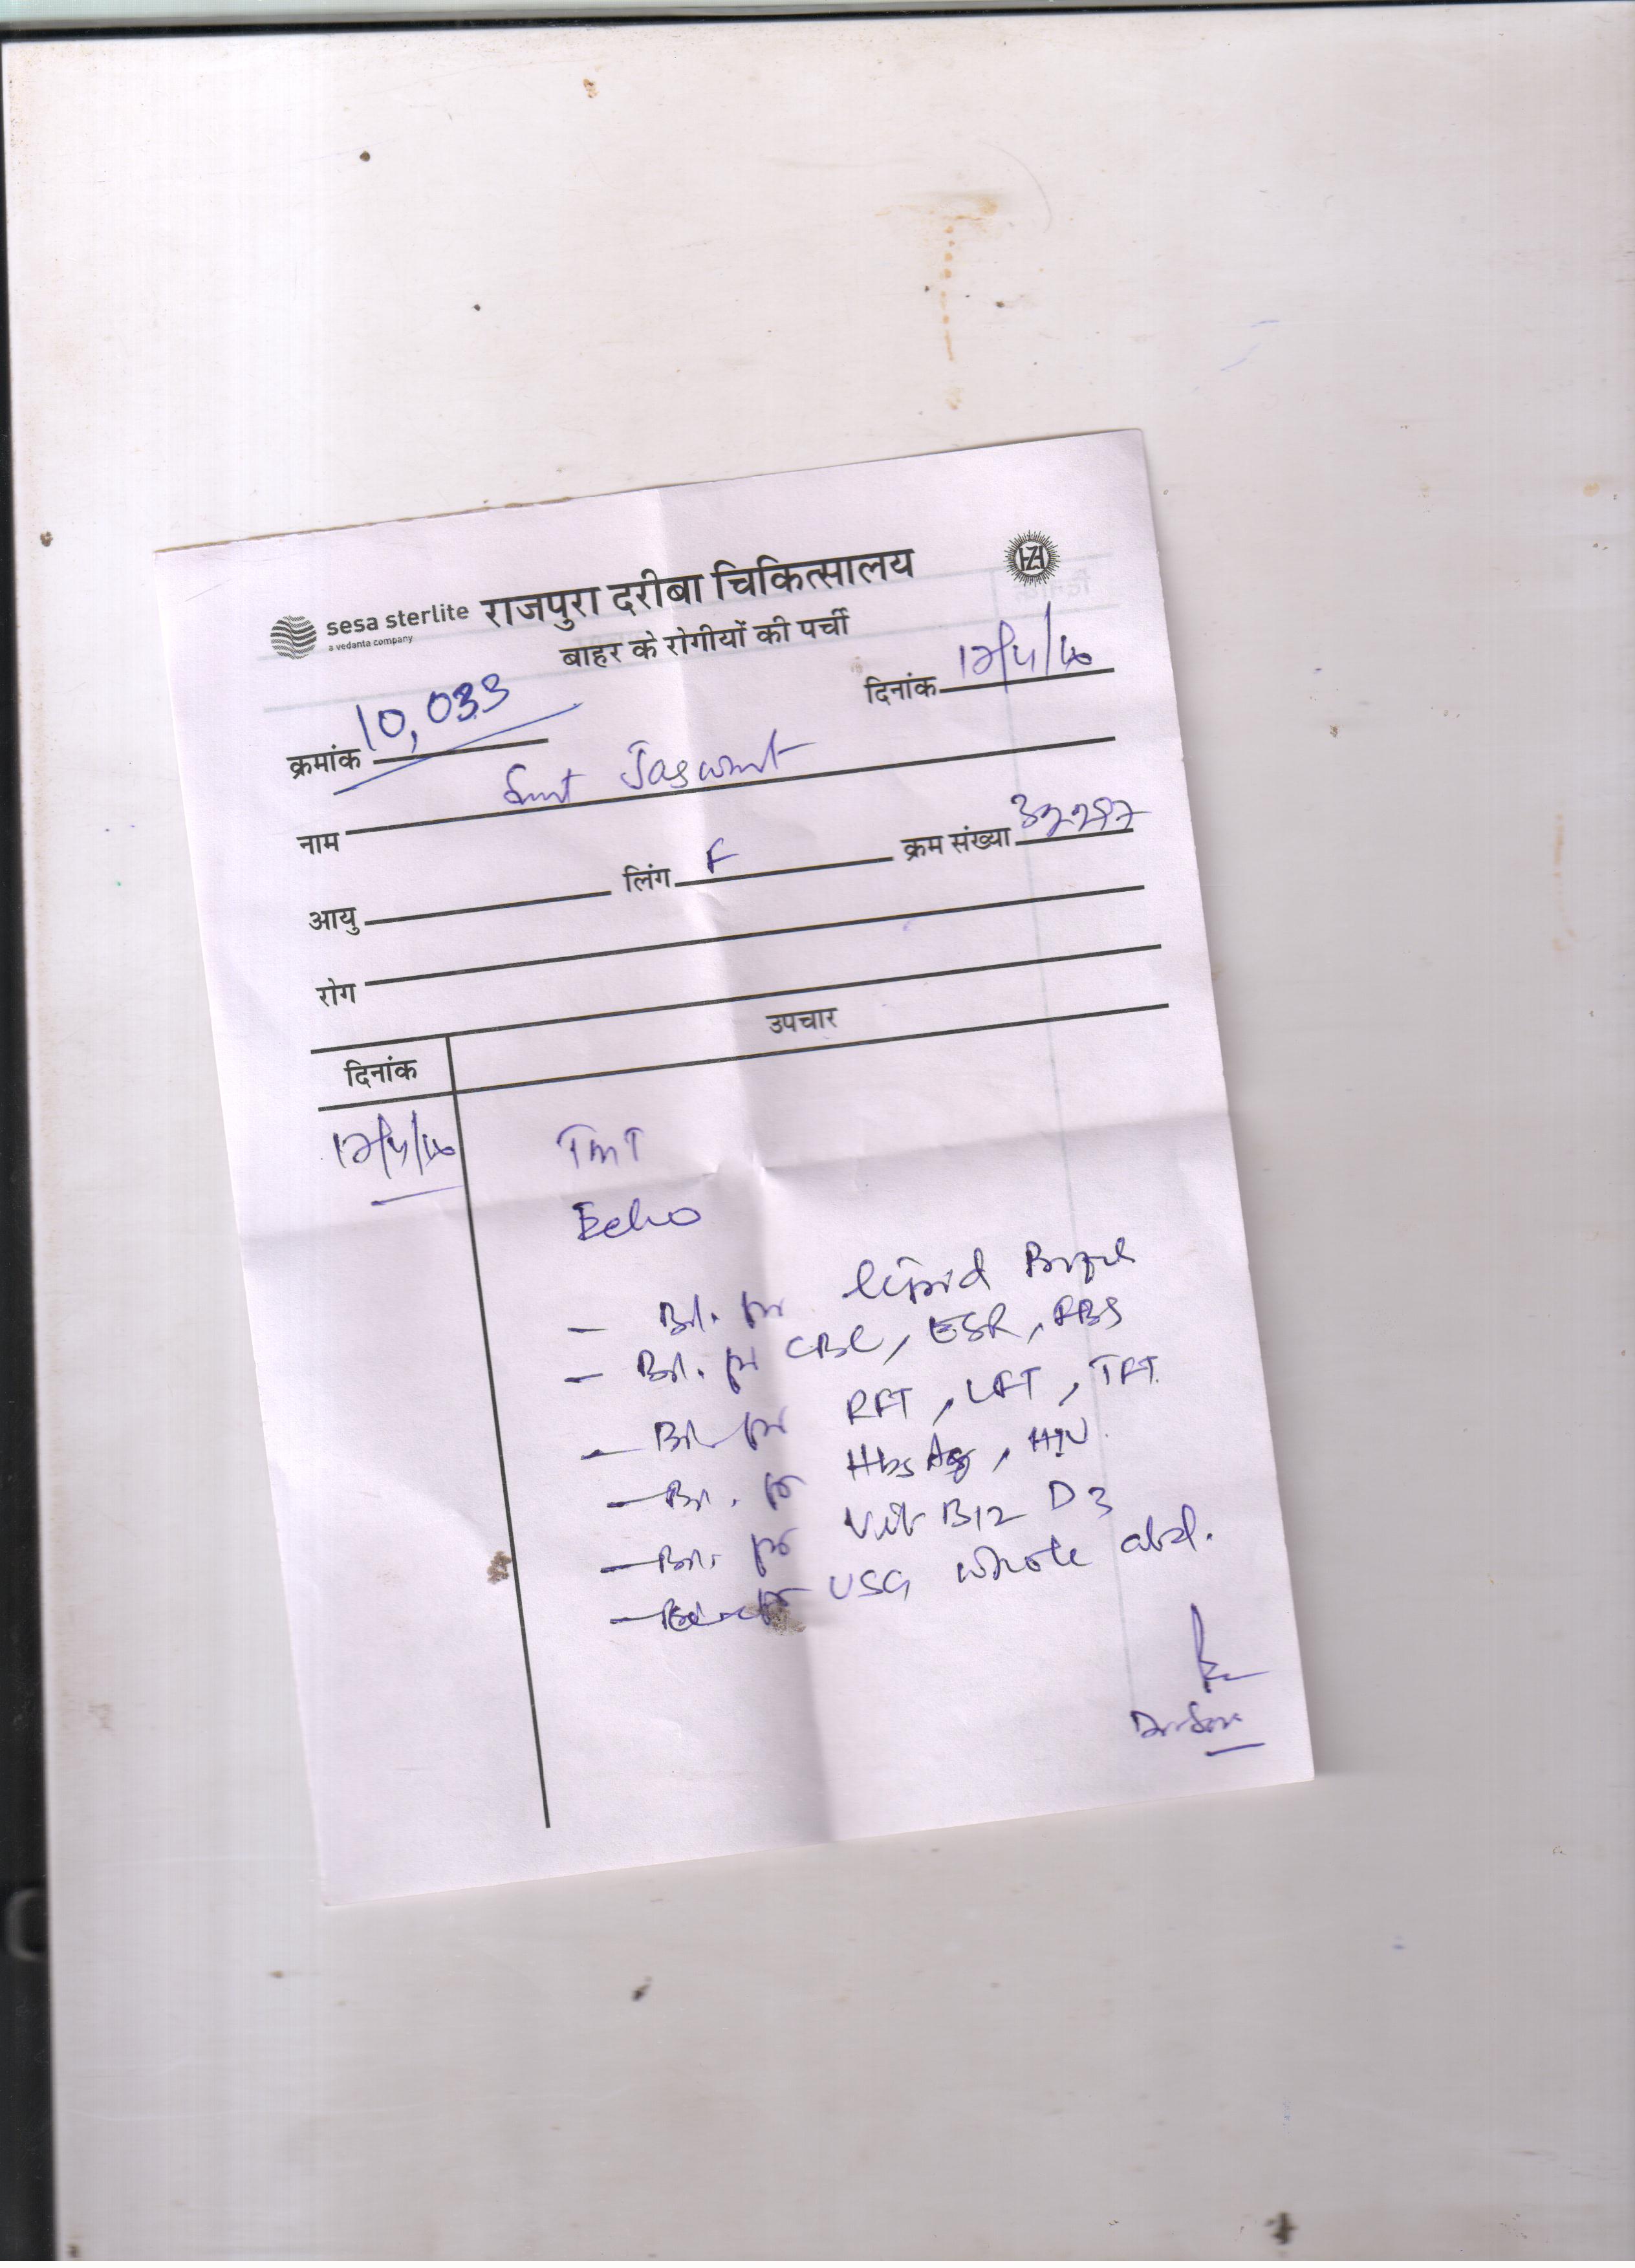 sesa sterlite
a vedanta company
राजपुरा दरीबा चिकित्सालय
HZL
बाहर के रोगीयों की पर्ची
क्रमांक 10,033
दिनांक
नाम Smt Jaswant
आयु लिंग F क्रम संख्या
रोग
दिनांक उपचार
TMT
Echo
- Bl. for lipid Profile
- Bl. for CBC, ESR, RBS
- Bl. for RFT, LFT, TFT
- Bl. for HbsAg, HIV
- Bl. for Vit B12 D3
- USG whole abd.